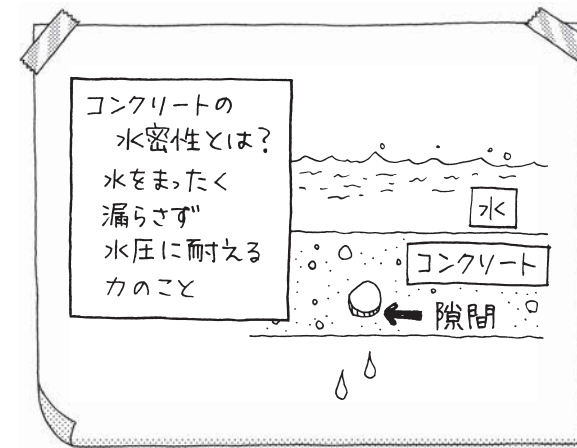 コンクリートの
水密性とは？
水をまったく
漏らさず
水圧に耐える
力のこと
水
コンクリート
隙間